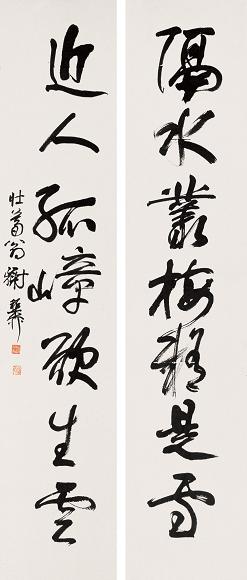 隔水叢梅疑是雪
近人孤嶂欲生雲
壯暮翁稚柳